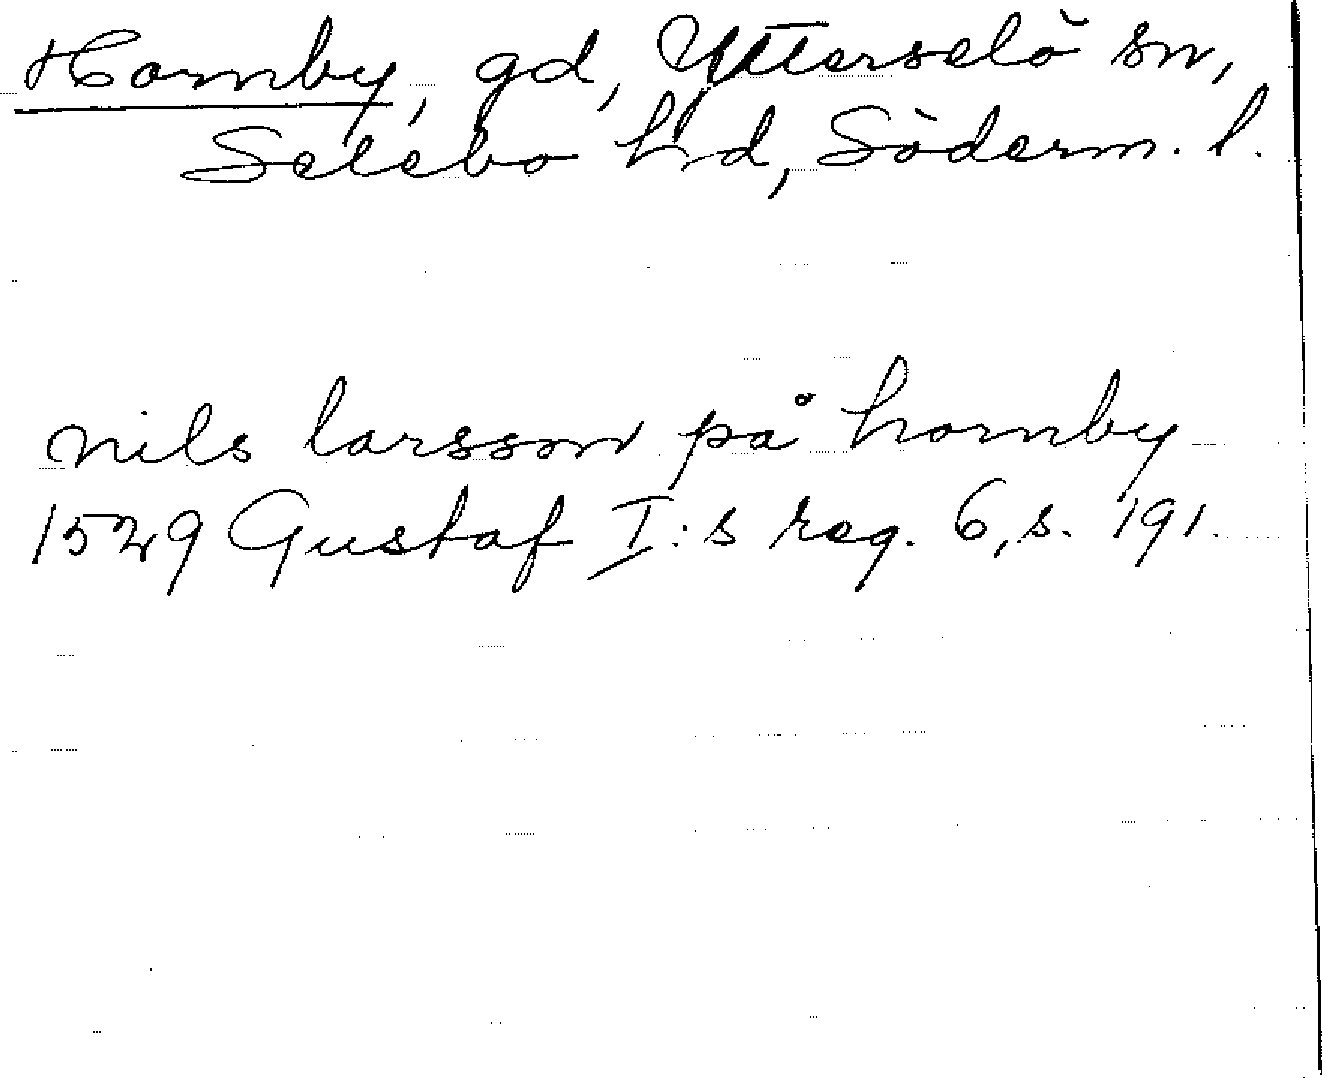 Hornby, gd, Ytterselö sn,
Selebo hd, Söderm. l.
nils larsson på hornby
1529 Gustaf I:s reg. 6, s. 191.